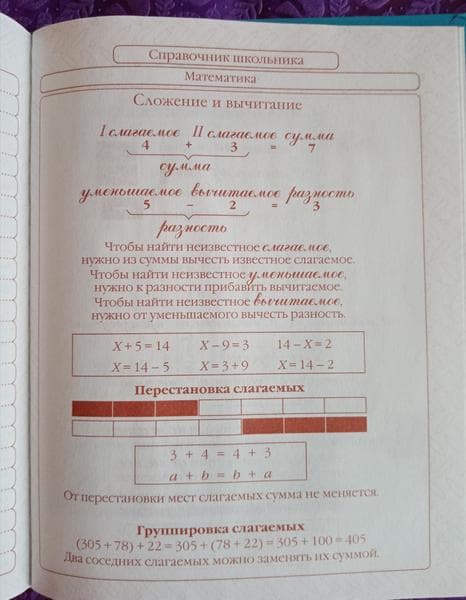 Справочник школьника
Математика
Сложение и вычитание
I слагаемое II слагаемое сумма
4 + 3 = 7
сумма
уменьшаемое вычитаемое разность
5 − 2 = 3
разность
Чтобы найти неизвестное слагаемое,
нужно из суммы вычесть известное слагаемое.
Чтобы найти неизвестное уменьшаемое,
нужно к разности прибавить вычитаемое.
Чтобы найти неизвестное вычитаемое,
нужно от уменьшаемого вычесть разность.
X+5=14 X−9=3 14−X=2
X=14−5 X=3+9 X=14−2
Перестановка слагаемых
3 + 4 = 4 + 3
a + b = b + a
От перестановки мест слагаемых сумма не меняется.
Группировка слагаемых
(305+78)+22=305+(78+22)=305+100=405
Два соседних слагаемых можно заменять их суммой.